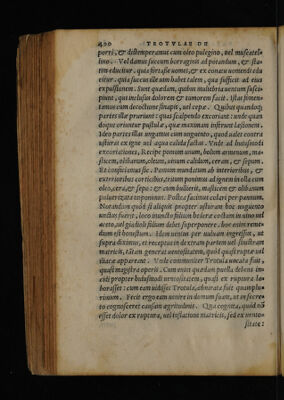 420 TROTVLAE DE
porri, & destemperatus cum oleo pulegino, uel muscatel-
lino. Vel damus succum borraginis ad potandum, & sta-
tim educitur. quia fortasse uomet, & ex conatu uomendi edu
citur. quia succus ille um habet talem, qua sufficit ad eius
expulsionem. Sunt quædam, quibus muliebria uentum susci-
piunt, quæ inclusus dolorem & tumorem facit. Istas fomen-
tamus cum decoctione sinapis, uel cepæ. Quibus quandoque
partes illæ pruriunt: quas scalpendo excoriant: unde quan
doque oriuntur pustulæ, quæ maximam inferunt læsionem.
Ideo partes illas ungamus cum unguento, quod ualet contra
usturas ex igne uel aqua calida factas. Vnde ad huiusmodi
excoriationes, Recipe pomum unum, bolum armenum, ma-
sticem, olibanum, oleum, uinum calidum, ceram, & sepum.
Et conficimus sic. Pomum mundatum ab interioribus, &
exterioribus corticibus, tritum ponimus ad ignem in olla cum
oleo, cera, & sepo: & cum bullierit, masticem & olibanum
puluerizata imponimus. Postea facimus colari per pannum.
Notandum quòd si aliquis propter usturam hoc unguento
unctus fuerit, loco inuncto folium hederæ coctum in uino uel
aceto, uel gladioli folium debet superponere: hoc enim remedi
dum est honestum. Idem uentus per uuluam ingressus, ut
supra diximus, et receptus in dextram partem uel sinistram
matricis, tātam generat uentositatem, quòd quasi ruptæ uel
iliacæ appareant. Vnde communiter Trotula uocata fuit,
quasi magistra operis. Cum enim quædam puella debens in-
cidi propter huiusmodi uentositatem, quasi ex ruptura la-
borasset: cum eam uidisset Trotula, admirata fuit quamplu-
rimum. Fecit ergo eam uenire in domum suam, ut in secre-
to cognosceret causam ægritudinis. Qua cognita, quòd nō
esset dolor ex ruptura, uel inflatione matricis, sed ex uento-
sitate: